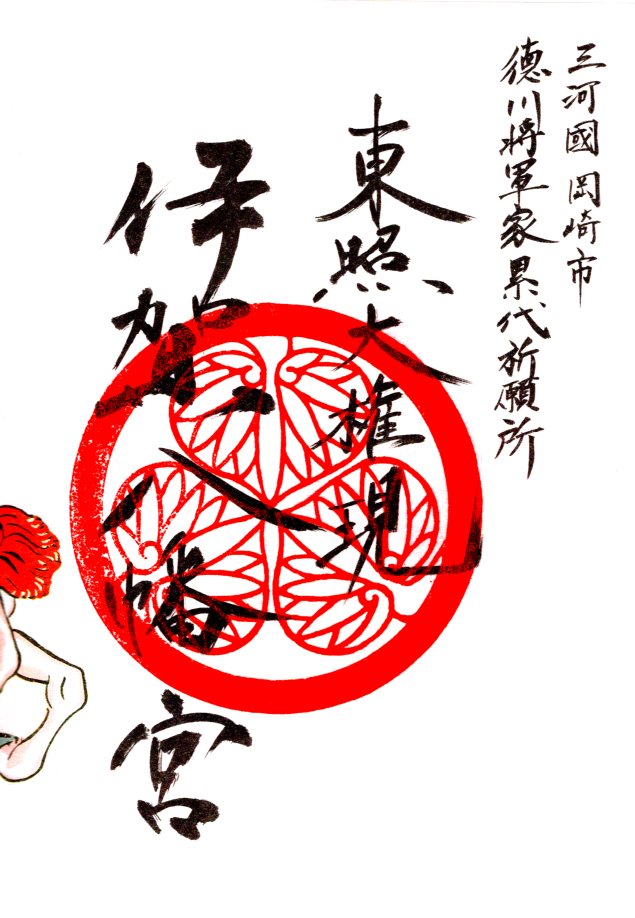 三河國岡崎市
德川将軍家累代祈願所
東照大権現
伊賀八幡宮